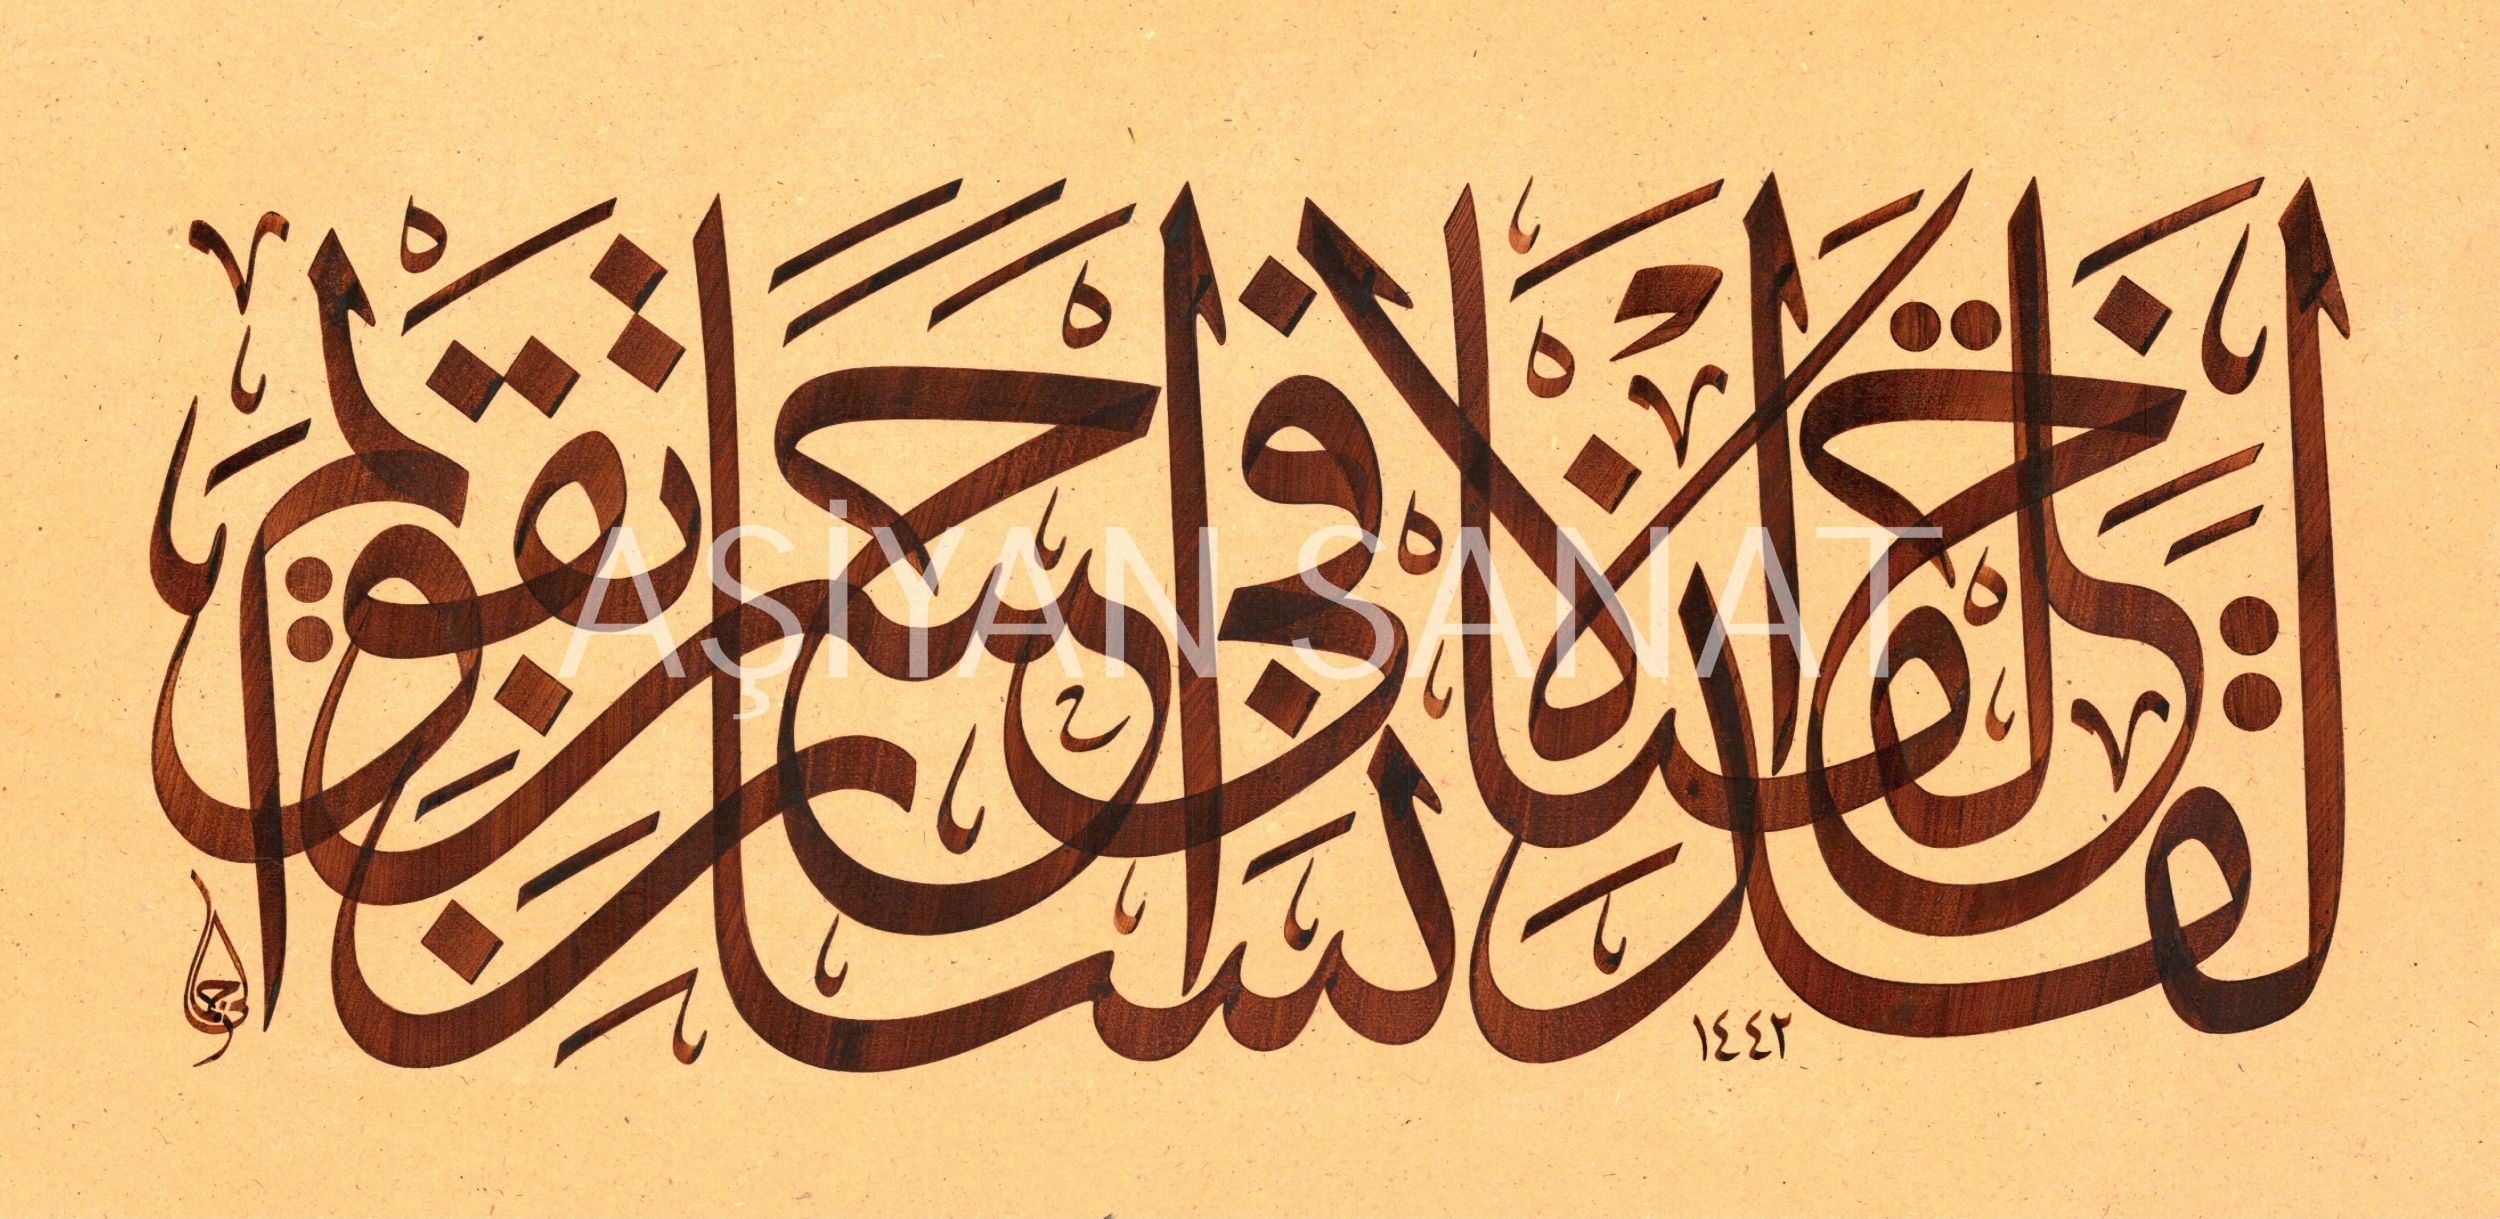 لقد خلقنا الإنسان في أحسن تقويم
١٤٤٢
AŞİYAN SANAT